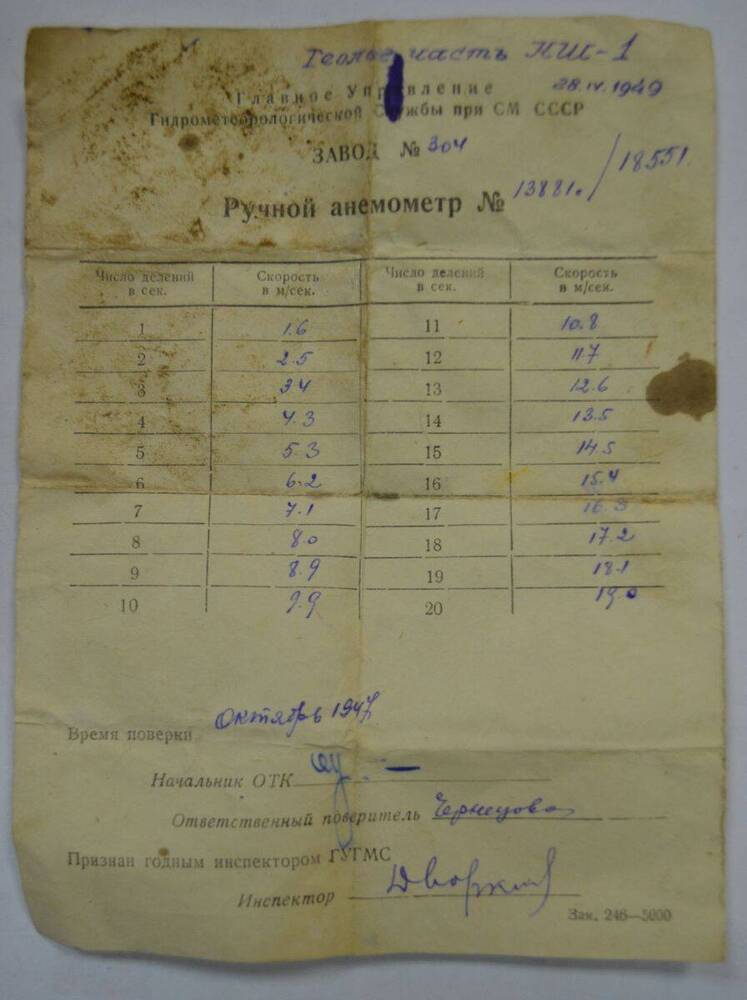 часть КИП-1
Главное Управление 28.IV.1949
Гидрометеорологической Службы при СМ СССР
ЗАВОД № 304
Ручной анемометр № 13881. / 18551.
Число делений в сек. Скорость в м/сек. Число делений в сек. Скорость в м/сек.
1 1.6 11 10.8
2 2.5 12 11.7
3 3.4 13 12.6
4 4.3 14 13.5
5 5.3 15 14.5
6 6.2 16 15.4
7 7.1 17 16.3
8 8.0 18 17.2
9 8.9 19 18.1
10 9.9 20 19.0
Время поверки Октябрь 1947
Начальник ОТК
Ответственный поверитель Чернецова
Признан годным инспектором ГУГМС
Инспектор Дворкин
Зак. 246—5000